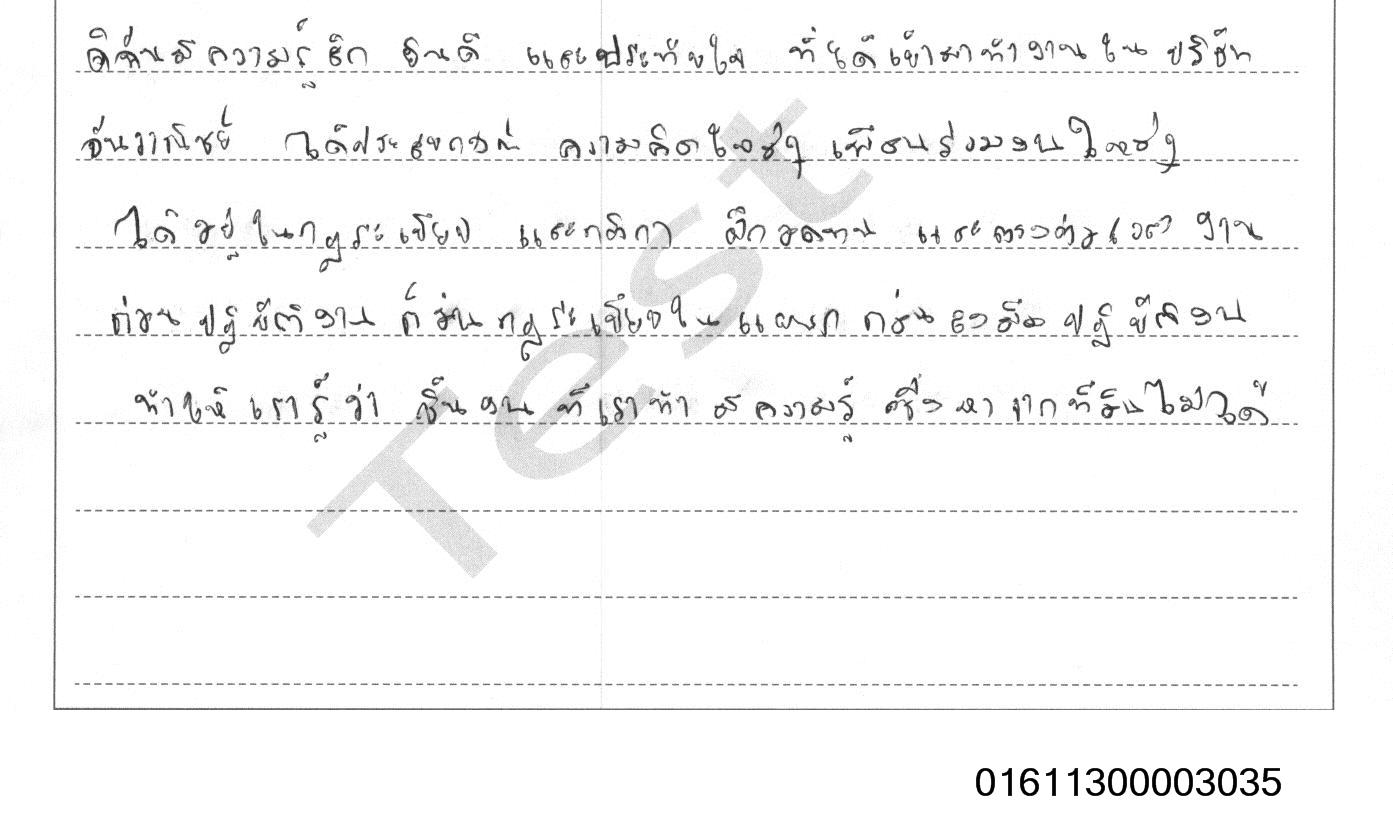 ดิฉันมีความรู้สึก ยินดี และประทับใจ ที่ได้เข้ามาทำงานใน บริษัท
ได้ประสบการณ์ ความคิดใหม่ๆ เพื่อนร่วมงานใหม่ๆ
ได้อยู่ในกฎระเบียบ และกติกา ฝึกอดทน และตรงต่อเวลา งาน
ก่อนปฏิบัติงาน ก็อ่านกฎระเบียบในแผนก ก่อนลงมือปฏิบัติงาน
ทำให้เรารู้ว่า ชิ้นงานที่เราทำ มีความรู้ ซึ่งหาจากที่อื่นไม่ได้
Test
01611300003035